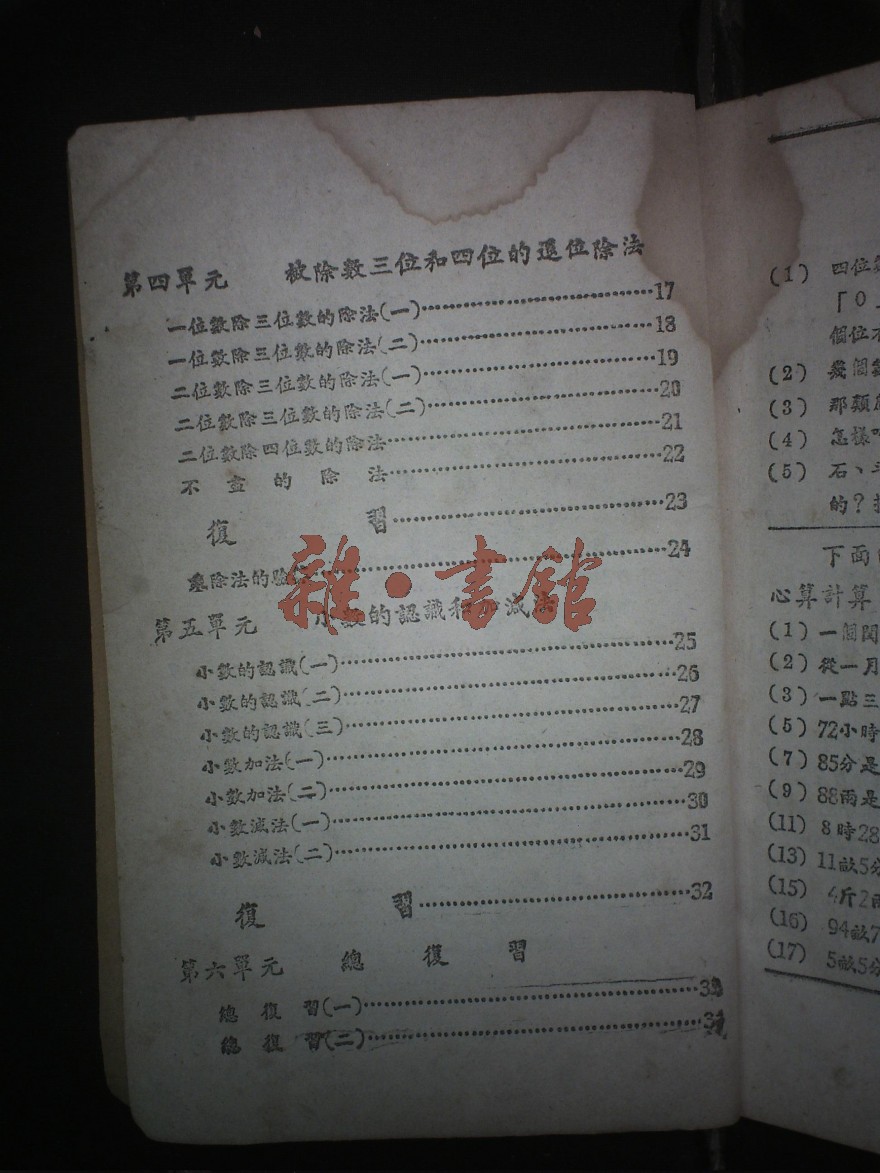 第四單元 被除數三位和四位的退位除法
一位數除三位數的除法(一)……17
一位數除三位數的除法(二)……18
二位數除三位數的除法(一)……19
二位數除三位數的除法(二)……20
二位數除四位數的除法……21
不盡的除法……22
復習……23
乘除法的驗……24
第五單元 小數的認識和加減法
小數的認識(一)……25
小數的認識(二)……26
小數的認識(三)……27
小數加法(一)……28
小數加法(二)……29
小數減法(一)……30
小數減法(二)……31
復習……32
第六單元 總復習
總復習(一)……33
總復習(二)……34
雜·書館
(1) 四位
「0
個位
(2) 幾個
(3) 那類
(4) 怎樣
(5) 石、斗
的?
下面
心算計算
(1) 一個
(2) 從一月
(3) 一點三
(5) 72小時
(7) 85分是
(9) 88兩是
(11) 8時28
(13) 11畝5分
(15) 4斤2兩
(16) 94畝7
(17) 5畝5分